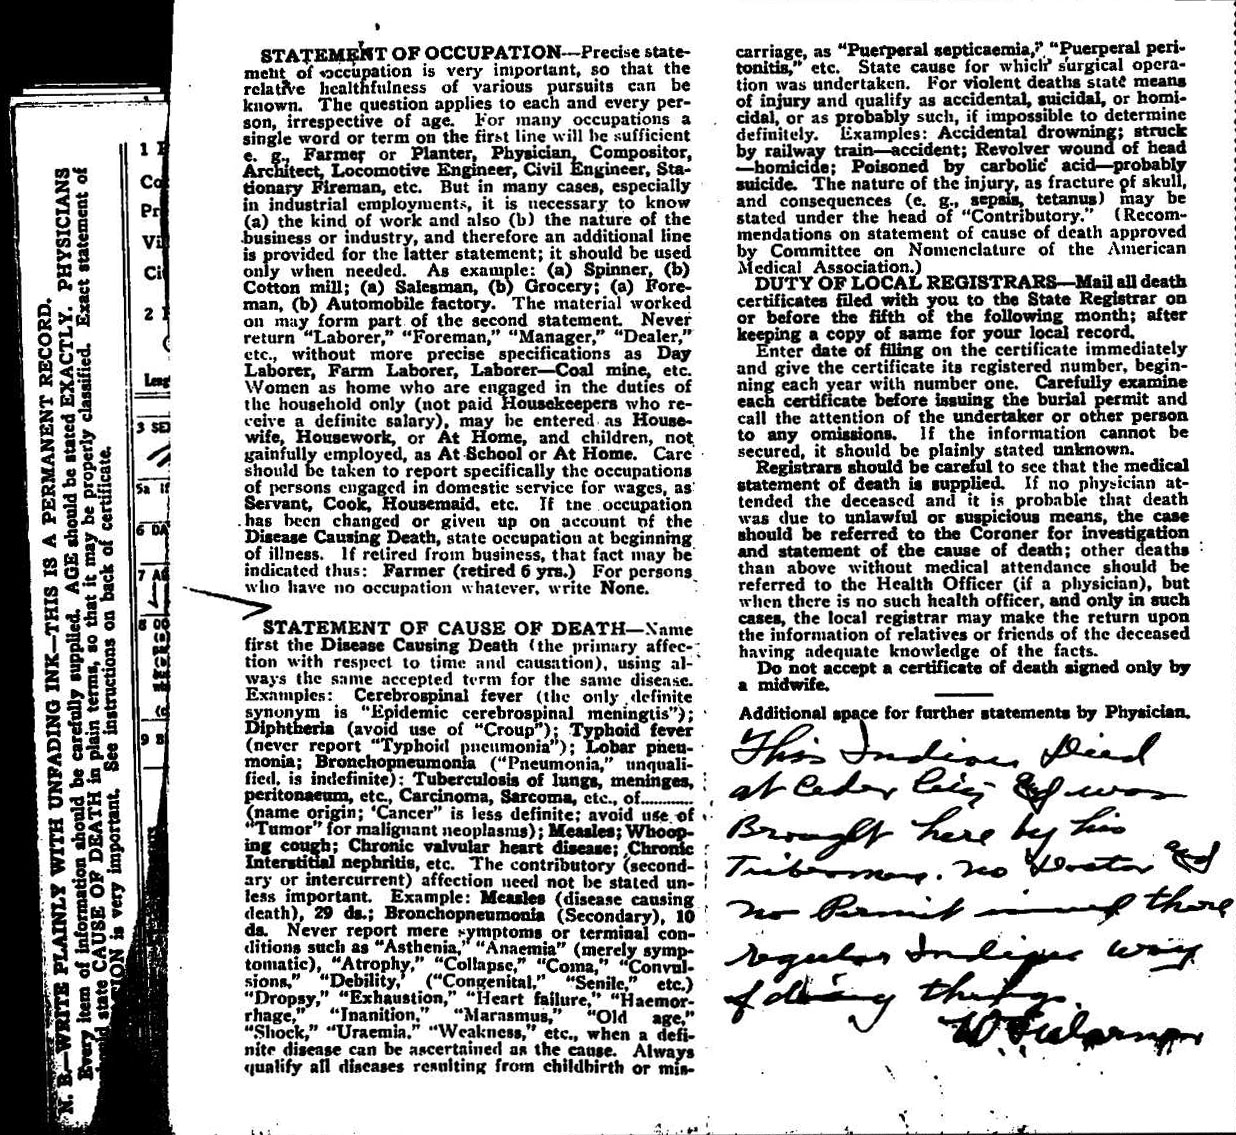 N. B.—WRITE PLAINLY WITH UNFADING INK—THIS IS A PERMANENT RECORD.
Every item of information should be carefully supplied. AGE should be stated EXACTLY. PHYSICIANS
should state CAUSE OF DEATH in plain terms, so that it may be properly classified. Exact statement of
is very important. See instructions on back of certificate.
1
Co
Pr
Vi
Cit
2
Leng
3 SE
5a If
6 DA
7 AG
8 OC
9 B
STATEMENT OF OCCUPATION—Precise state-
ment of occupation is very important, so that the
relative healthfulness of various pursuits can be
known. The question applies to each and every per-
son, irrespective of age. For many occupations a
single word or term on the first line will be sufficient
e. g., Farmer or Planter, Physician, Compositor,
Architect, Locomotive Engineer, Civil Engineer, Sta-
tionary Fireman, etc. But in many cases, especially
in industrial employments, it is necessary to know
(a) the kind of work and also (b) the nature of the
business or industry, and therefore an additional line
is provided for the latter statement; it should be used
only when needed. As example: (a) Spinner, (b)
Cotton mill; (a) Salesman, (b) Grocery; (a) Fore-
man, (b) Automobile factory. The material worked
on may form part of the second statement. Never
return "Laborer," "Foreman," "Manager," "Dealer,"
etc., without more precise specifications as Day
Laborer, Farm Laborer, Laborer—Coal mine, etc.
Women as home who are engaged in the duties of
the household only (not paid Housekeepers who re-
ceive a definite salary), may be entered as House-
wife, Housework, or At Home, and children, not
gainfully employed, as At School or At Home. Care
should be taken to report specifically the occupations
of persons engaged in domestic service for wages, as
Servant, Cook, Housemaid, etc. If the occupation
has been changed or given up on account of the
Disease Causing Death, state occupation at beginning
of illness. If retired from business, that fact may be
indicated thus: Farmer (retired 6 yrs.) For persons
who have no occupation whatever, write None.
STATEMENT OF CAUSE OF DEATH—Name
first the Disease Causing Death (the primary affec-
tion with respect to time and causation), using al-
ways the same accepted term for the same disease.
Examples: Cerebrospinal fever (the only definite
synonym is "Epidemic cerebrospinal meningtis");
Diphtheria (avoid use of "Croup"); Typhoid fever
(never report "Typhoid pneumonia"); Lobar pneu-
monia; Bronchopneumonia ("Pneumonia," unquali-
fied, is indefinite); Tuberculosis of lungs, meninges,
peritonaeum, etc., Carcinoma, Sarcoma, etc., of............
(name origin; 'Cancer" is less definite; avoid use of
"Tumor" for malignant neoplasms); Measles; Whoop-
ing cough; Chronic valvular heart disease; Chronic
Interstitial nephritis, etc. The contributory (second-
ary or intercurrent) affection need not be stated un-
less important. Example: Measles (disease causing
death), 29 ds.; Bronchopneumonia (Secondary), 10
ds. Never report mere symptoms or terminal con-
ditions such as "Asthenia," "Anaemia" (merely symp-
tomatic), "Atrophy," "Collapse," "Coma," "Convul-
sions," "Debility,' ("Congenital," "Senile," etc.)
"Dropsy," "Exhaustion," "Heart failure," "Haemor-
rhage," "Inanition," "Marasmus," "Old age,"
"Shock," "Uraemia," "Weakness," etc., when a defi-
nite disease can be ascertained as the cause. Always
qualify all diseases resulting from childbirth or mis-
carriage, as "Puerperal septicaemia," "Puerperal peri-
tonitis," etc. State cause for which surgical opera-
tion was undertaken. For violent deaths state means
of injury and qualify as accidental, suicidal, or homi-
cidal, or as probably such, if impossible to determine
definitely. Examples: Accidental drowning; struck
by railway train—accident; Revolver wound of head
—homicide; Poisoned by carbolic acid—probably
suicide. The nature of the injury, as fracture of skull,
and consequences (e. g., sepsis, tetanus) may be
stated under the head of "Contributory." (Recom-
mendations on statement of cause of death approved
by Committee on Nomenclature of the American
Medical Association.)
DUTY OF LOCAL REGISTRARS—Mail all death
certificates filed with you to the State Registrar on
or before the fifth of the following month; after
keeping a copy of same for your local record.
Enter date of filing on the certificate immediately
and give the certificate its registered number, begin-
ning each year with number one. Carefully examine
each certificate before issuing the burial permit and
call the attention of the undertaker or other person
to any omissions. If the information cannot be
secured, it should be plainly stated unknown.
Registrars should be careful to see that the medical
statement of death is supplied. If no physician at-
tended the deceased and it is probable that death
was due to unlawful or suspicious means, the case
should be referred to the Coroner for investigation
and statement of the cause of death; other deaths
than above without medical attendance should be
referred to the Health Officer (if a physician), but
when there is no such health officer, and only in such
cases, the local registrar may make the return upon
the information of relatives or friends of the deceased
having adequate knowledge of the facts.
Do not accept a certificate of death signed only by
a midwife.
Additional space for further statements by Physician.
This Indian Died
at Cedar City and was
Brought here by his
Tribesmen. no Doctor and
no Permit issued there
regular Indian way
of doing things.
W